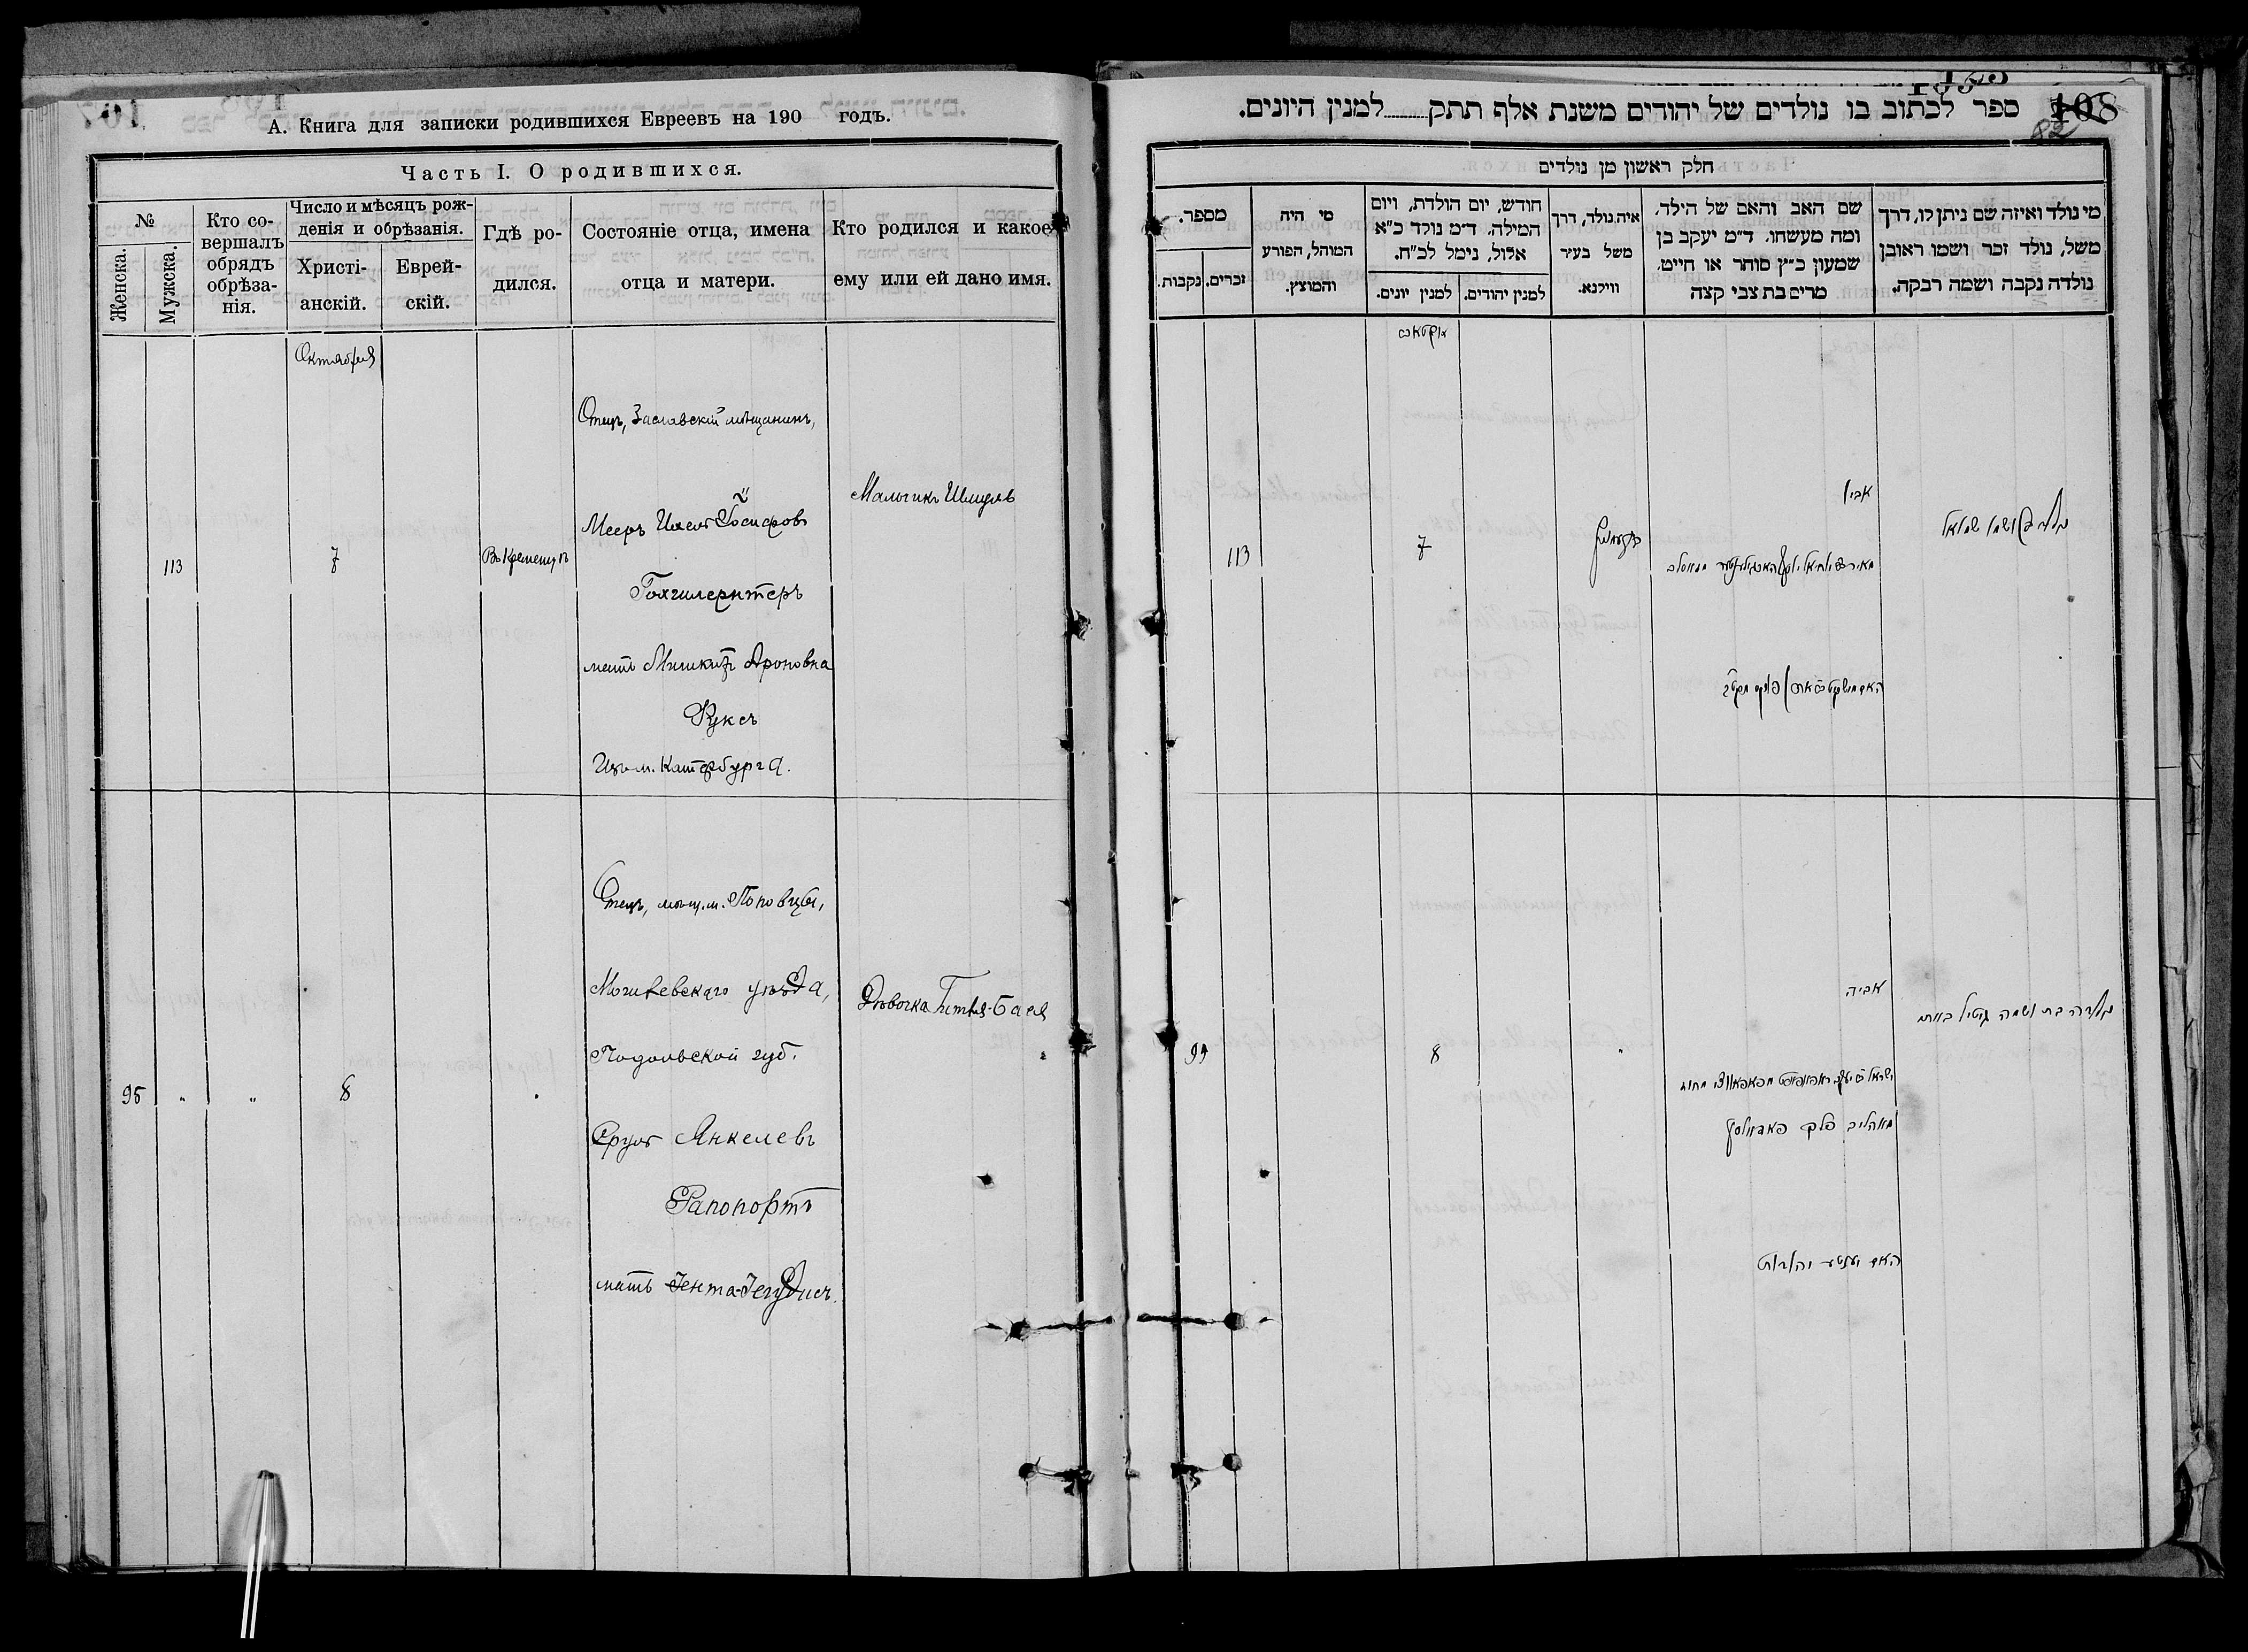 А. Книга для записки родившихся Евреевъ на 190 годъ.
Часть I. О родившихся.
№
Женска.
Мужска.
Кто со-
вершалъ
обрядъ
обрѣза-
нія.
Число и мѣсяцъ рож-
денія и обрѣзанія.
Христі-
анскій.
Еврей-
скій.
Гдѣ ро-
дился.
Состояніе отца, имена
отца и матери.
Кто родился и какое
ему или ей дано имя.
Октября
113
7
Въ Кременцѣ
Отецъ, Заславскій мѣщанинъ,
Мееръ Ихель Іосифовъ
мать Ароновна
Куксъ
Изъ м. Катербурга.
Мальчикъ Шмуль
95 „ „ 8
Отецъ, мѣщ. м. Поповцы,
Могилевскаго уѣзда,
Подольской губ.
Сруль Янкелевъ
Рапопортъ
мать Іента-Іегудисъ.
Дѣвочка Гитля-Бася
108
82
ספר לכתוב בו נולדים של יהודים משנת אלף תתק........למנין היונים.
חלק ראשון מן נולדים
מי נולד ואיזה שם ניתן לו, דרך
משל, נולד זכר ושמו ראובן
נולדה נקבה ושמה רבקה.
שם האב והאם של הילד.
ומה מעשהו. ד״מ יעקב בן
שמעון כ״ץ סוחר או חייט.
מרים בת צבי קצה
איה נולד, דרך
משל בעיר
ווילנא.
חודש, יום הולדת, ויום
המילה. ד״מ נולד כ״א
אלול, נימל לכ״ח.
למנין יהודים.
למנין יונים.
מי היה
המוהל, הפורע
והמוצץ.
מספר.
זכרים.
נקבות.
113
7
אביו
94
8
אביה
נולדה בת ושמה גיטיל באסי